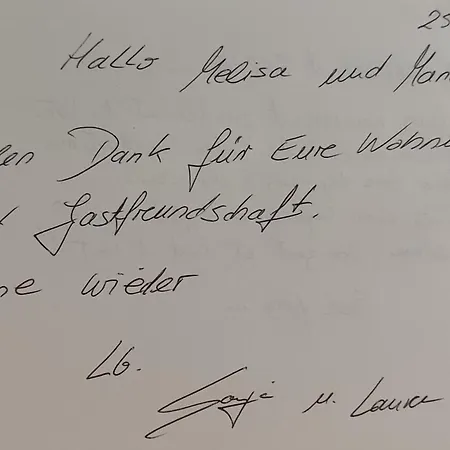 25
Hallo Melisa und Man
len Dank für Eure Wohnu
d Gastfreundschaft.
ne wieder
LG.
u. Laura